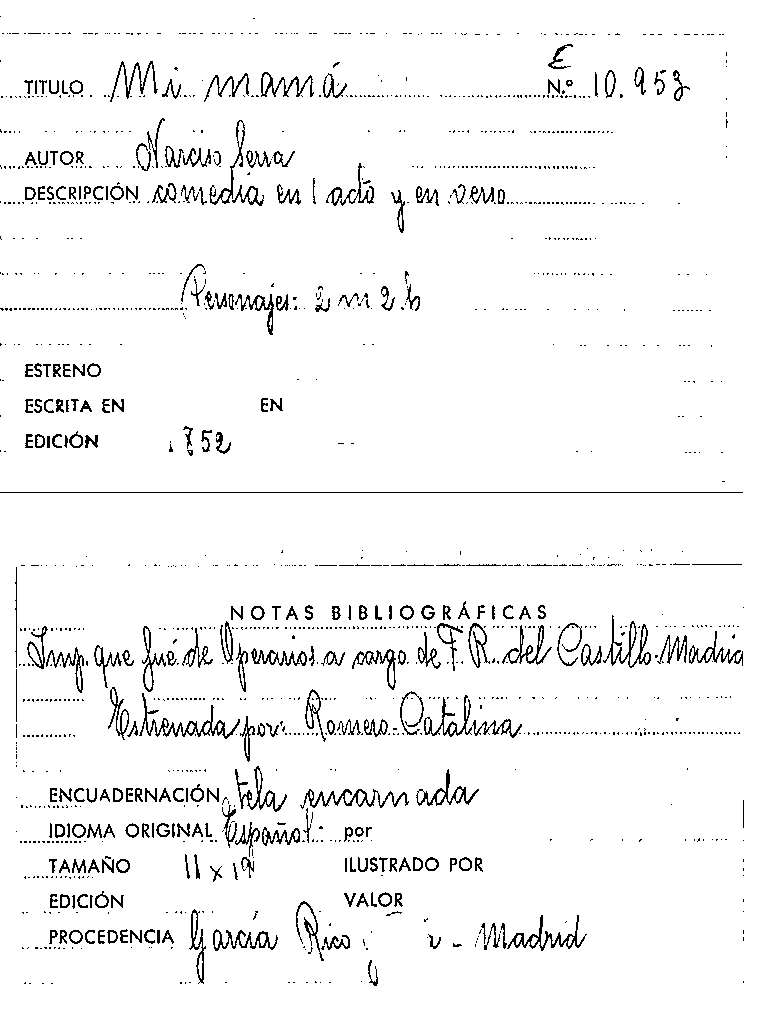 E
TITULO Mi mamá N.º 10.953
AUTOR Narciso Serra
DESCRIPCIÓN comedia en 1 acto y en verso
Personajes: 2 m 2 h
ESTRENO
ESCRITA EN EN
EDICIÓN 1852
NOTAS BIBLIOGRÁFICAS
Imp. que fué de Operarios a cargo de F. R. del Castillo-Madrid
Estrenada por: Romero-Catalina
ENCUADERNACIÓN tela encarnada
IDIOMA ORIGINAL Español: por
TAMAÑO 11 x 19 ILUSTRADO POR
EDICIÓN VALOR
PROCEDENCIA García Rico - Madrid